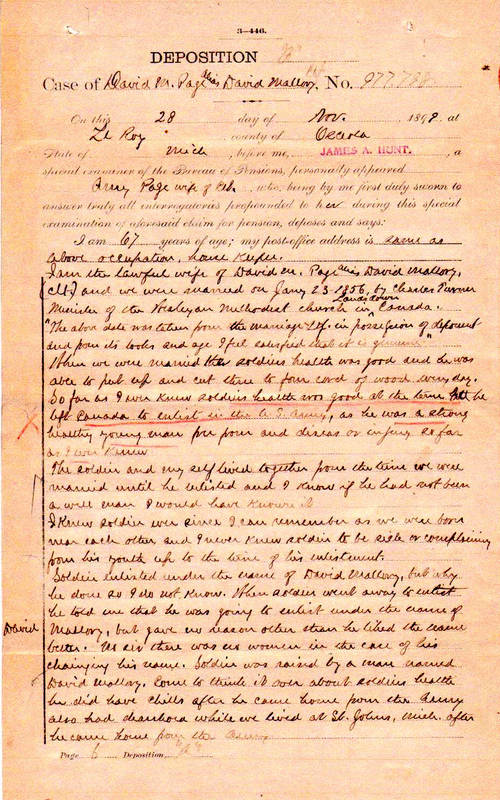 3-446.
DEPOSITION "A"
Case of David M. Page alias David Mallory, No. 977,788
On this 28 day of Nov., 1898 at
Le Roy county of Osceola
State of Mich, before me, JAMES A. HUNT, a
special examiner of the Bureau of Pensions, personally appeared
Amy Page wife of Clt., who, being by me first duly sworn to
answer truly all interrogatories propounded to her during this special
examination of aforesaid claim for pension, deposes and says:
I am 67 years of age; my post-office address is same as
above occupation, house keeper.
I am the lawful wife of David M. Page alias David Mallory,
(Clt) and we were married on Jany 23-1856, by Charles
Minister of the Wesleyan Methodist church in Lansdown Canada.
"The above date was taken from the marriage ctf. in possession of deponent
and from its looks and age I feel satisfied that it is genuine"
When we were married the soldiers health was good and he was
able to put up and cut three to four cord of wood every day.
So far as I ever knew soldiers health was good at the time he
left Canada to enlist in the U.S. Army, as he was a strong
healthy young man free from and diseas or injury so far
as I ever knew
The soldier and my self lived together from the time we were
married until he enlisted and I know if he had not been
a well man I would have known it
I knew soldier ever since I can remember as we were born
near each other and I never knew soldier to be sick or complaining
from his youth up to the time of his enlistment.
Soldier enlisted under the name of David Mallory, but why
he done so I do not know. When soldier went away to enlist
he told me that he was going to enlist under the name of
David Mallory, but gave no reason other than he liked the name
better. No sir there was no women in the case of his
changing his name. Soldier was raised by a man named
David Mallory. Come to think it over about soldiers health
he did have chills after he came home from the Army
also had diarrhora while we lived at St. Johns, Mich. after
he came home from the Army
Page 6 Deposition "A"